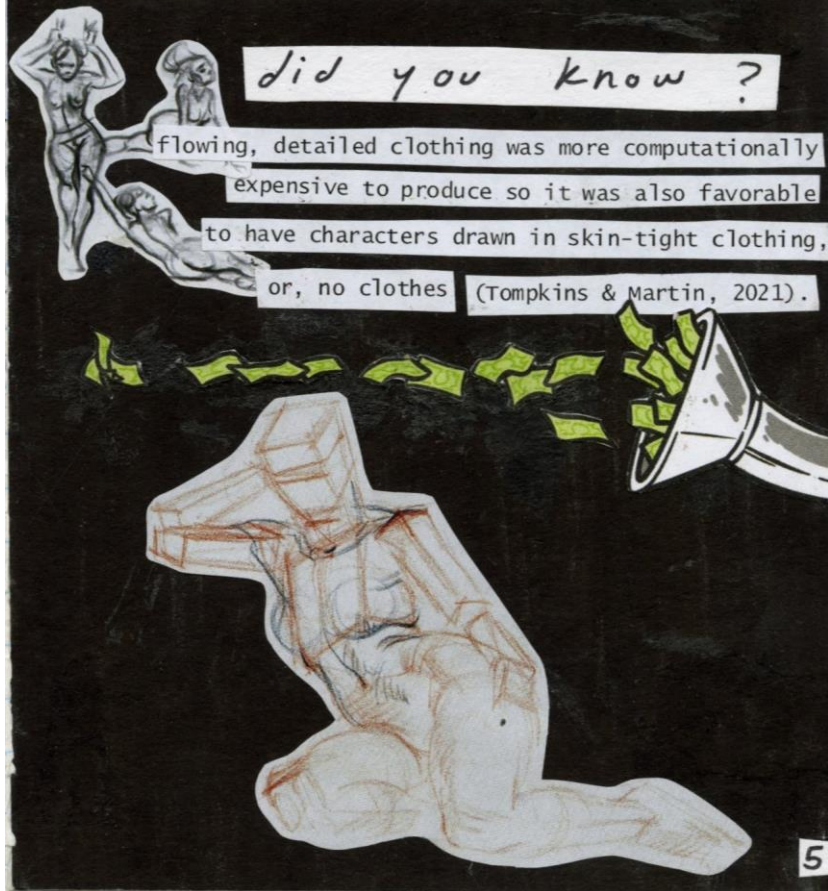 did you know ?
flowing, detailed clothing was more computationally
expensive to produce so it was also favorable
to have characters drawn in skin-tight clothing,
or, no clothes (Tompkins & Martin, 2021).
5